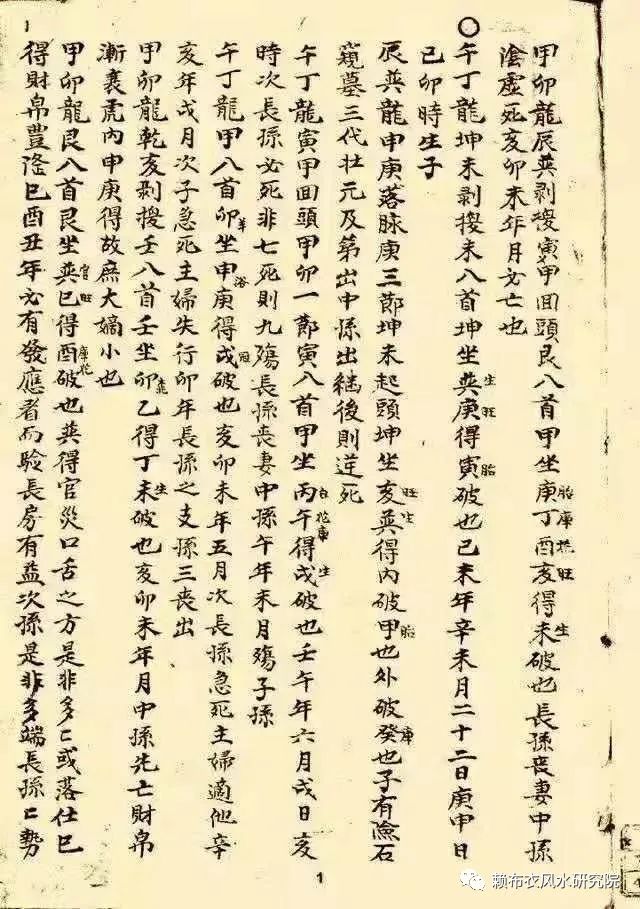 甲卯龍辰巽剥換寅甲回頭艮入首甲坐庚丁酉亥得未破也長孫喪妻中孫
胎庫旺生
陰虛死亥卯未年月必亡也
午丁龍坤未剥換未入首坤坐巽庚得寅破也己未年辛未月二十二日庚申日
生旺胎
己卯時生子
辰巽龍申庚落脉庚三節坤未起頭坤坐亥巽得內破甲也外破癸也子有險石
旺生胎庫
窺墓三代壮元及第出中孫出継後則逆死
午丁龍寅甲回頭甲卯一節寅入首甲坐丙午得戌破也壬午年六月戌日亥
花庫生
時次長孫必死非七死則九殤長孫喪妻中孫午年未月殤子孫
午丁龍甲入首卯坐申庚得戌破也亥卯未年五月次長孫急死主婦適他辛
浴冠
亥年戌月次子急死主婦失行卯年長孫之支孫三喪出
甲卯龍乾亥剥換壬入首壬坐卯乙得丁未破也亥卯未年月中孫先亡財帛
生
漸衰虎內申庚得故庶大嫡小也
甲卯龍艮入首艮坐巽巳得酉破也巽得官災口舌之方是非多々或落仕巳
官旺庫花
得財帛豊隆巳酉丑年必有發應者而驗長房有益次孫是非多端長孫々勢
1
赖布衣风水研究院